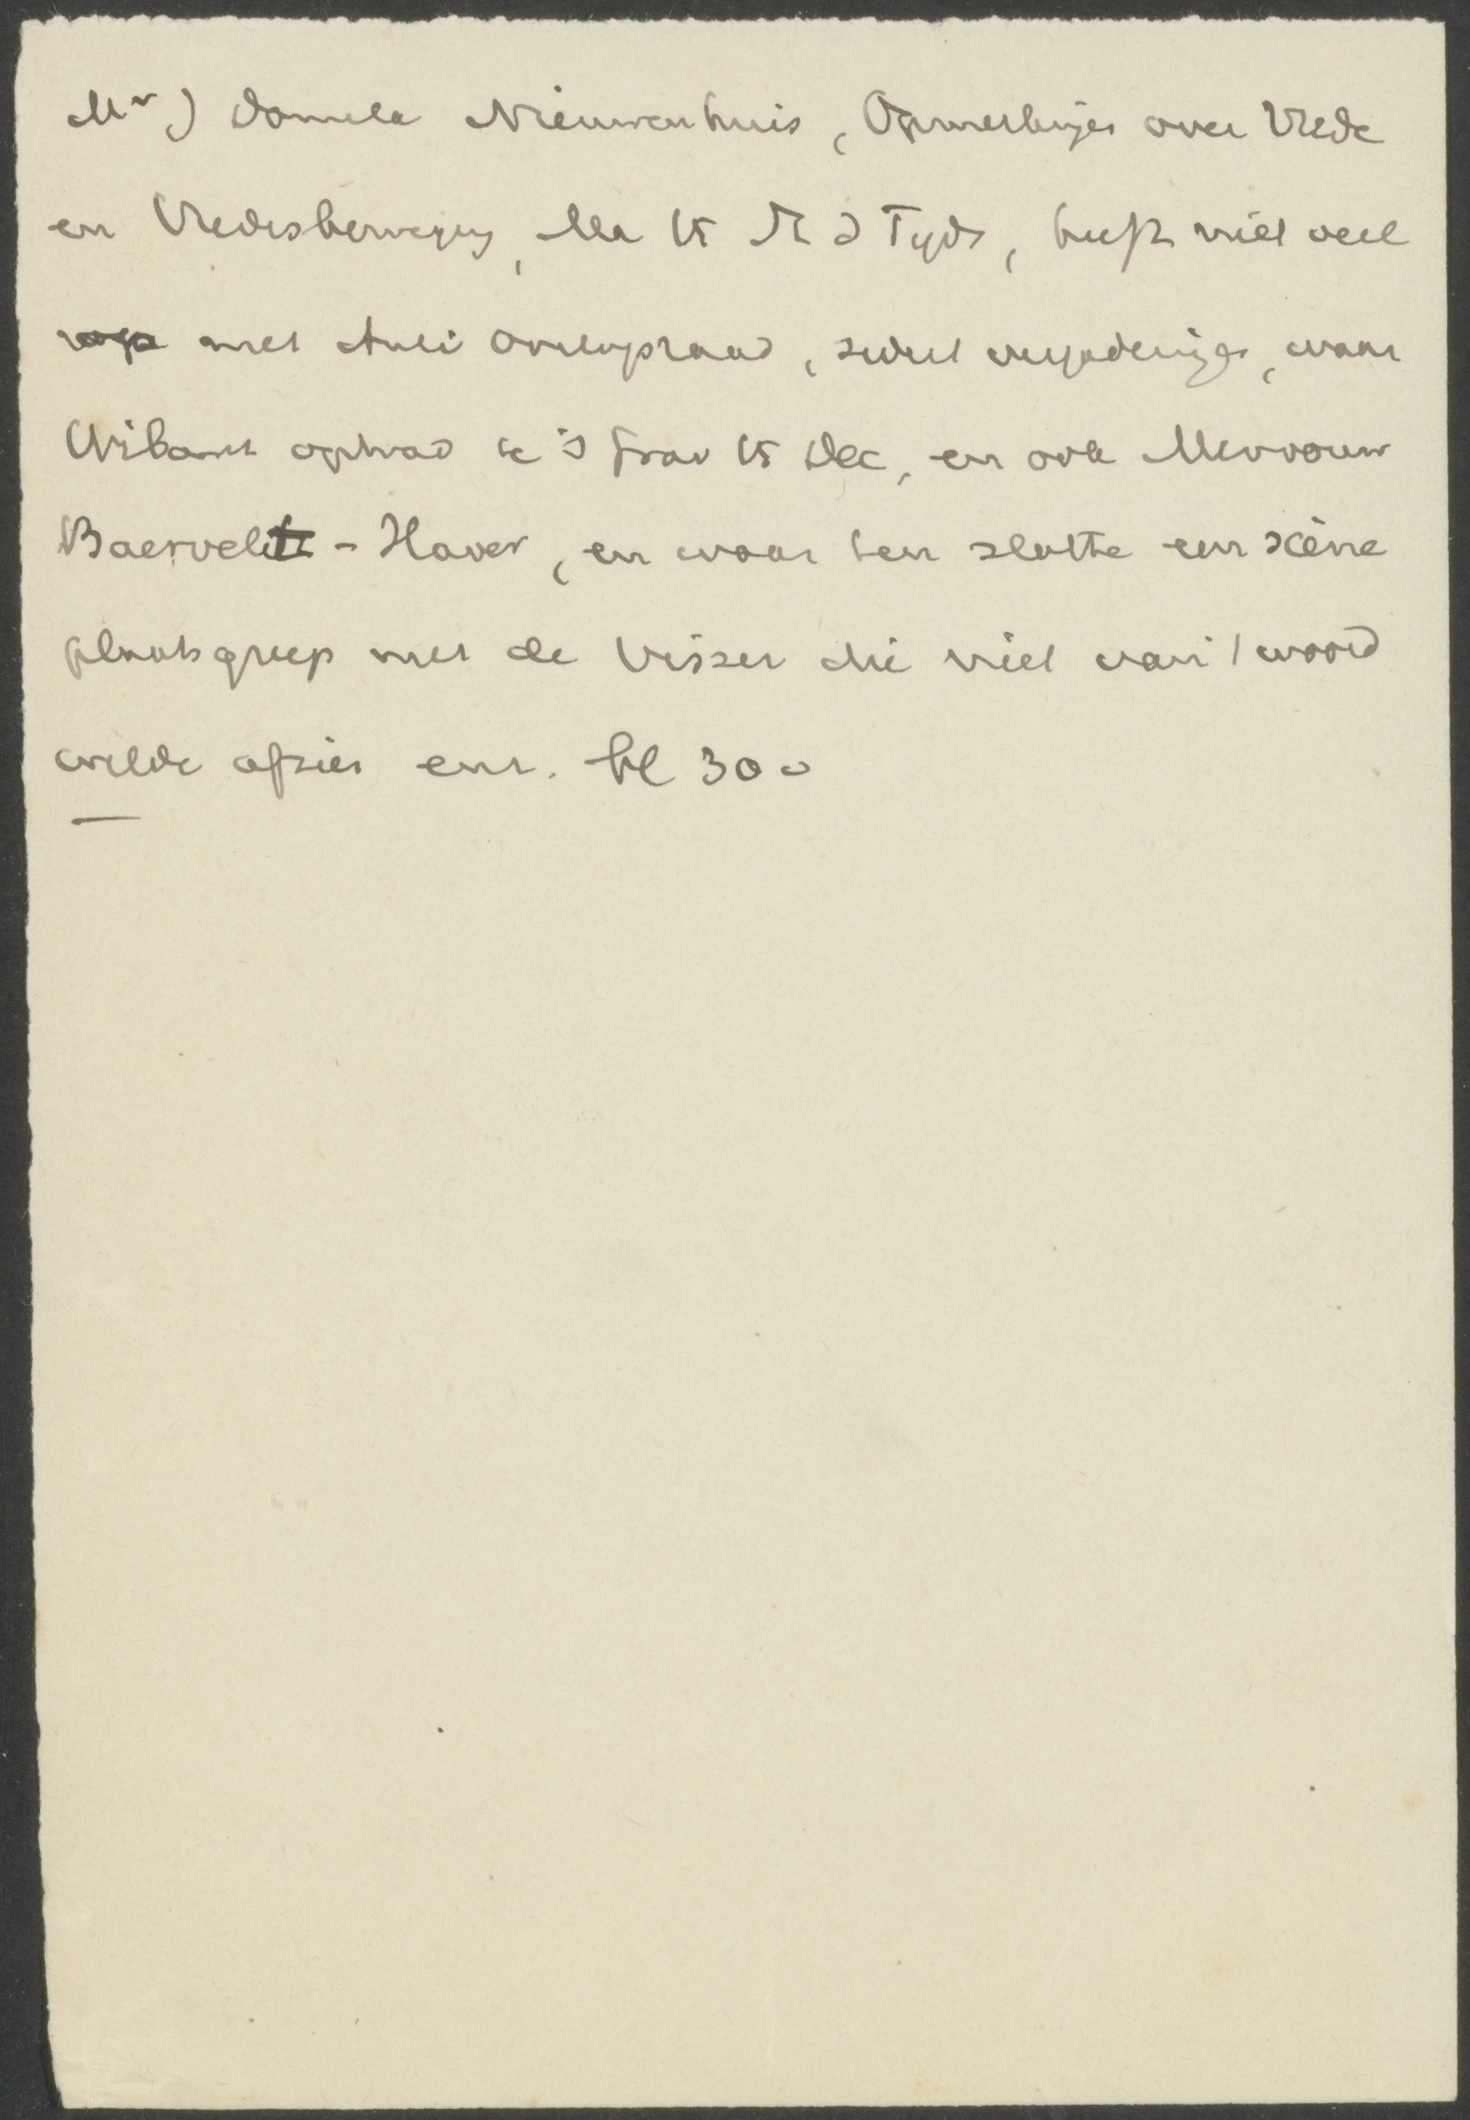 Mr J Domela Nieuwenhuis, Opmerkinges over Vrede
en Vredesbeweging, Ma 15 Vr d Tyds, heeft niet veel
op met Anti Oorlogsraad, vergaderinges, waar
Wibaut optrad te 's Grav 15 Dec, en ook Mevrouw
Baerveldt - Haver, en waar ten slotte een scène
plaatsgreep met de Visser die niet van 't woord
wilde afzien enz. bl 300